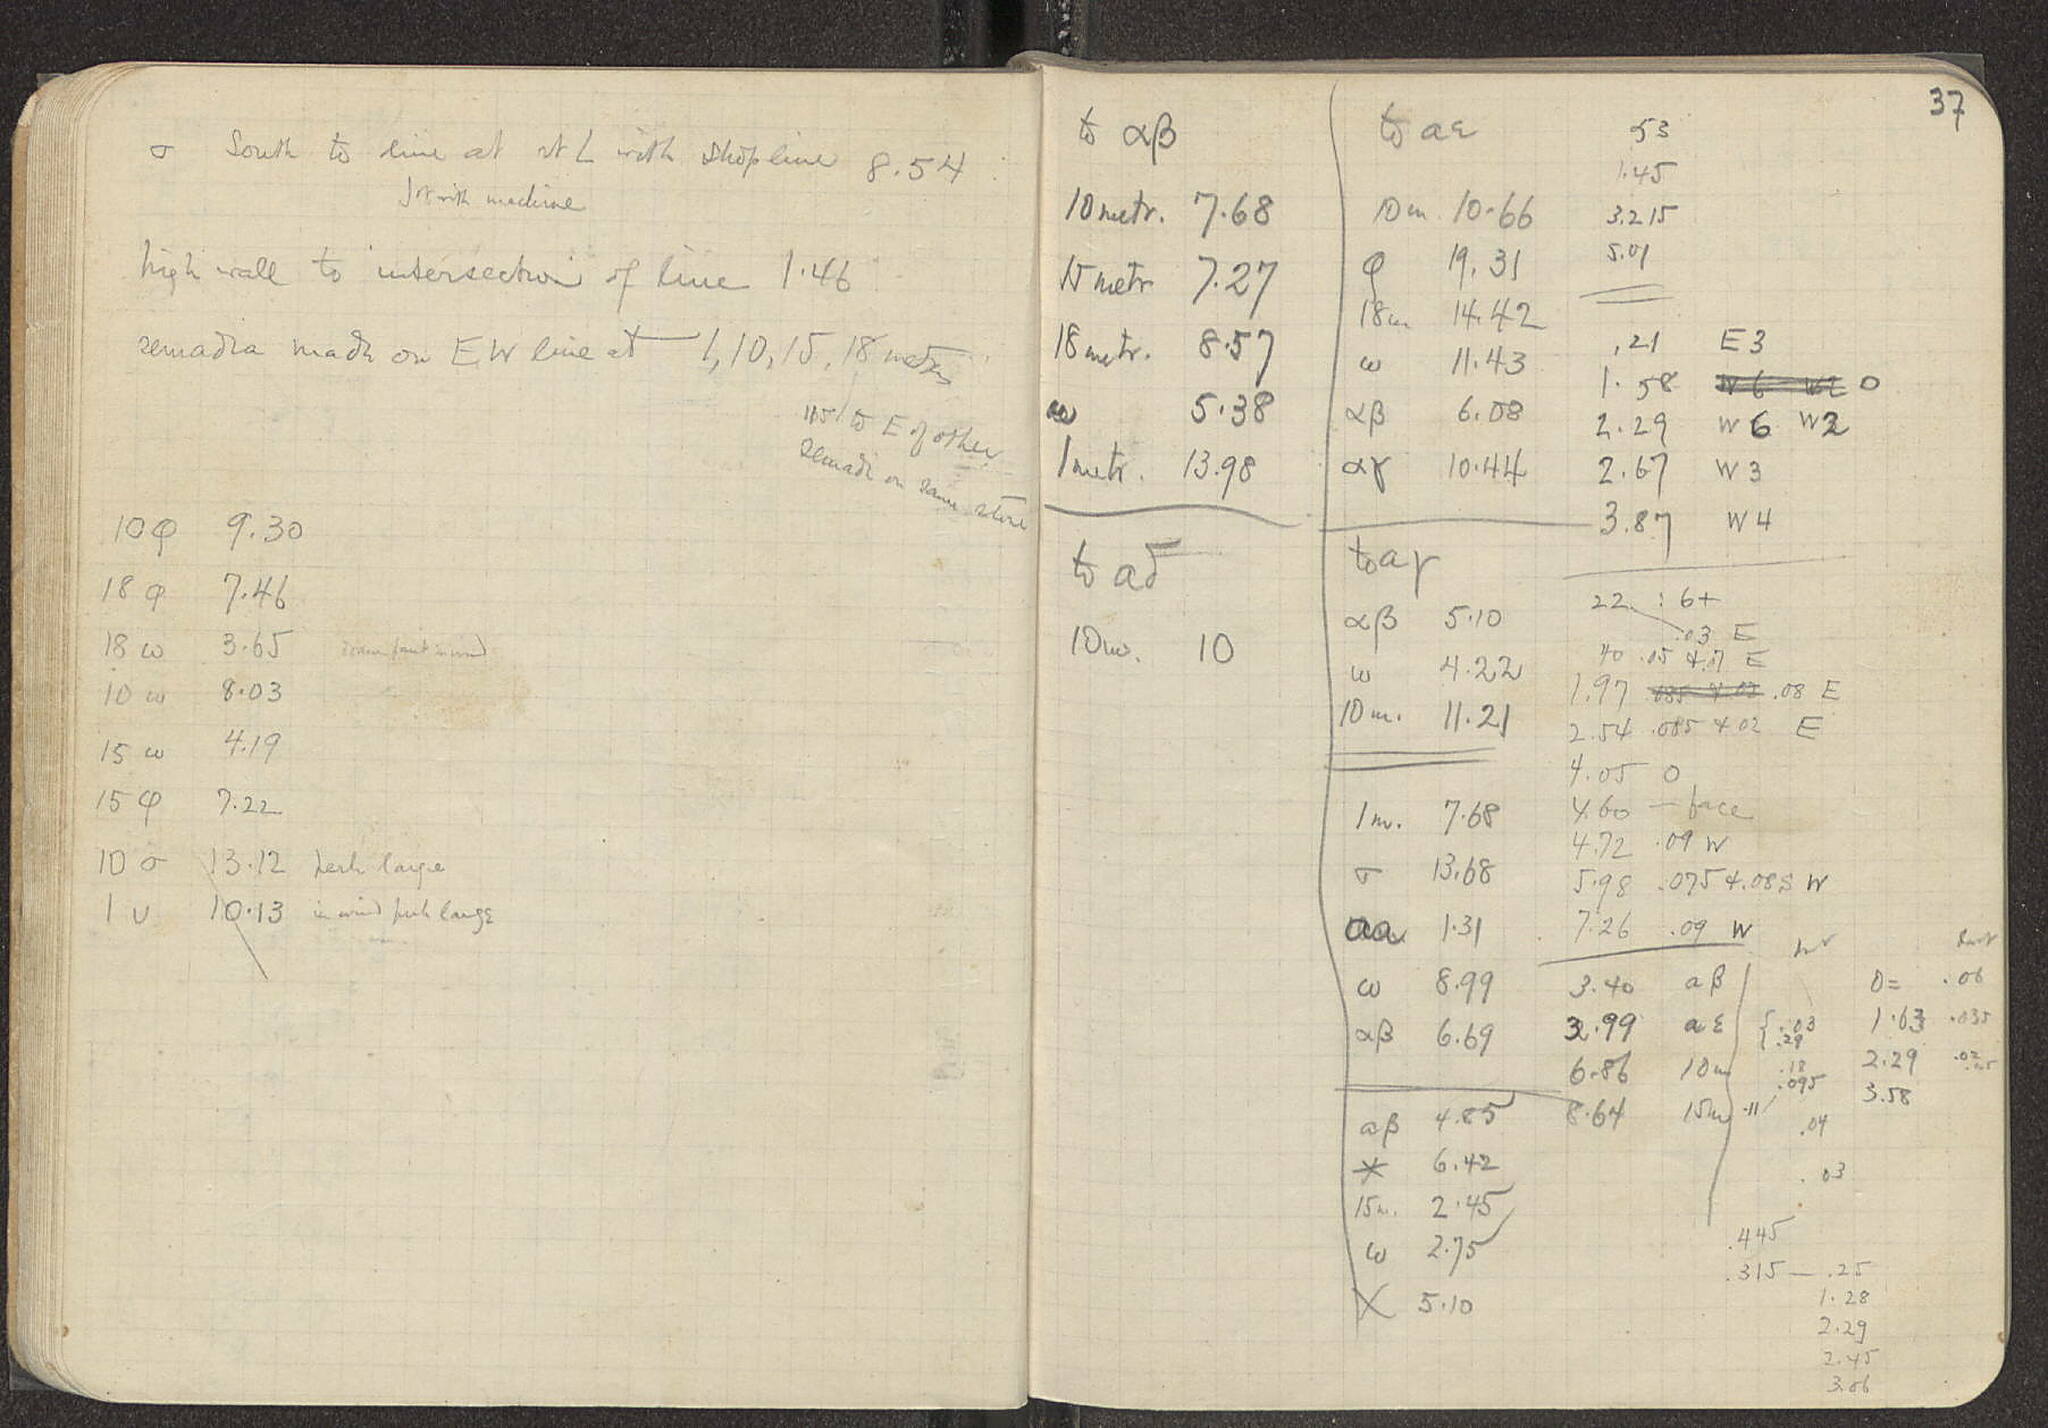 σ South to line at rt L with shop line 8.54
with machine
high wall to intersection of line 1.46
semadia made on EW line at 1, 10, 15, 18 metres
to E of other
semadi on same stone
10 φ 9.30
18 φ 7.46
18 ω 3.65
10 ω 8.03
15 ω 4.19
15 φ 7.22
10 σ 13.12 perh large
1 υ 10.13 in wind perh large
37
to αβ
10 metr. 7.68
15 metr 7.27
18 metr. 8.57
ω 5.38
1 metr. 13.98
to αδ
10 m. 10
to αε
10 m. 10.66
φ 19.31
18 m 14.42
ω 11.43
αβ 6.08
αγ 10.44
to αγ
αβ 5.10
ω 4.22
10 m. 11.21
1 m. 7.68
σ 13.68
αα 1.31
ω 8.99
αβ 6.69
αβ 4.85
* 6.42
15 m. 2.45
ω 2.75
X 5.10
.53
1.45
3.215
5.01
.21 E 3
1.58 W 6 W 2 0
2.29 W 6 W 2
2.67 W 3
3.87 W 4
22 : 6+
.03 E
40 .05 + .07 E
1.97 .085 + .02 .08 E
2.54 .085 + .02 E
4.05 0
4.60 — face
4.72 .09 W
5.98 .075 + .085 W
7.26 .09 W
3.40 αβ
2.99 αε
6.86 10 m
8.64 15 m
.03
.29
.18
.095
.11
.04
.03
0 = .06
1.03 .035
2.29 .02
3.58
.445
.315 — .25
1.28
2.29
2.45
3.06